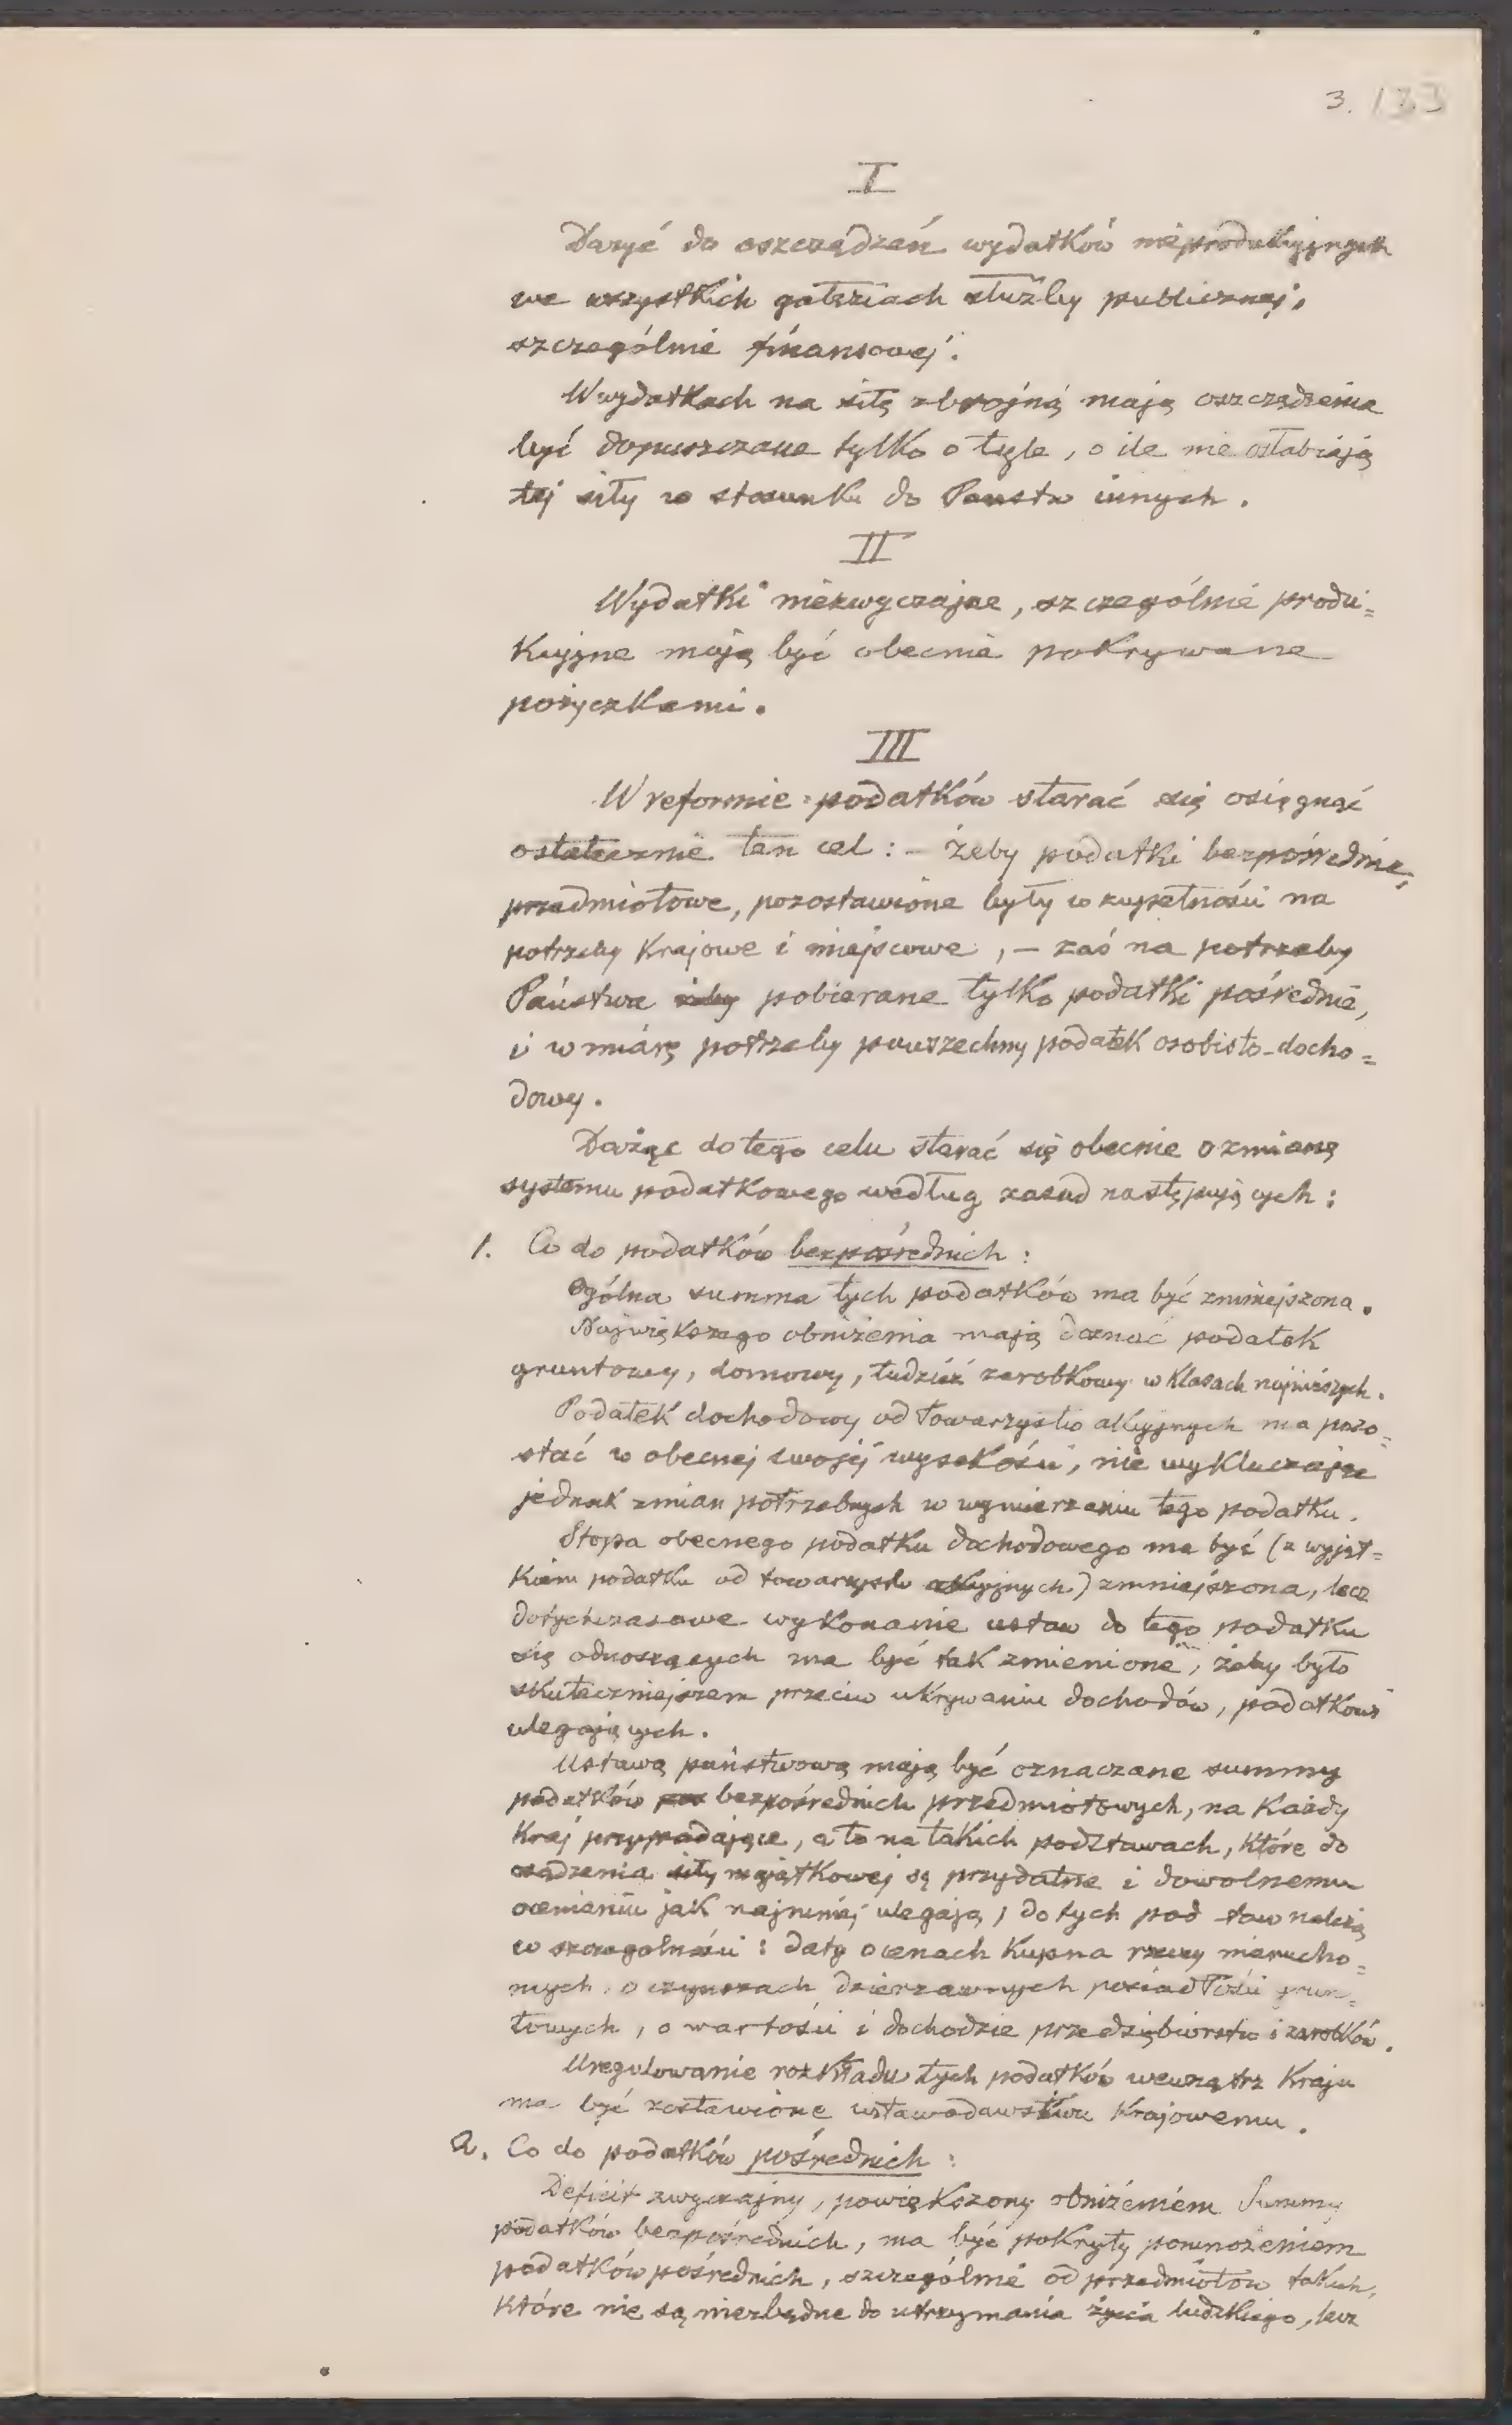 3. 133
I
Dążyć do oszczędzeń wydatków nieprodukcyjnych
we wszystkich gałęziach służby publicznej,
szczególnie finansowej.
W wydatkach na siłę zbrojną mają oszczędzenia
być dopuszczane tylko o tyle, o ile nie osłabiają
tej siły w stosunku do Państw innych.
II
Wydatki niezwyczajne, szczególnie produ=
kcyjne mają być obecnie pokrywane
pożyczkami.
III
W reformie podatków starać się osięgnąć
ostatecznie ten cel: – żeby podatki bezpośrednie,
przedmiotowe, pozostawione były w zupełności na
potrzeby krajowe i miejscowe, – zaś na potrzeby
Państwa żeby pobierane tylko podatki pośrednie,
i w miarę potrzeby powszechny podatek osobisto-docho=
dowy.
Dążąc do tego celu starać się obecnie o zmianę
systemu podatkowego według zasad następujących:
1. Co do podatków bezpośrednich:
Ogólna summa tych podatków ma być zmniejszona.
Największego obniżenia mają doznać podatek
gruntowy, domowy, tudzież zarobkowy w klasach najniższych.
Podatek dochodowy od Towarzystw akcyjnych ma pozo=
stać w obecnej swojej wysokości, nie wykluczając
jednak zmian potrzebnych w wymierzaniu tego podatku.
Stopa obecnego podatku dochodowego ma być (z wyjąt=
kiem podatku od towarzystw akcyjnych) zmniejszona, lecz
dotychczasowe wykonanie ustaw do tego podatku
się odnoszących ma być tak zmienione, żeby było
skuteczniejszem przeciw ukrywaniu dochodów, podatkowi
ulegających.
Ustawą państwową mają być oznaczane summy
podatków bezpośrednich przedmiotowych, na każdy
kraj przypadające, a to na takich podstawach, które do
osądzenia siły majątkowej są przydatne i dowolnemu
ocenianiu jak najmniej ulegają; do tych podstaw należą
w szczególności: daty o cenach kupna rzeczy nierucho=
mych, o czynszach dzierżawnych posiadłości grun=
towych, o wartości i dochodzie przedsiębiorstw i zarobków.
Uregulowanie rozkładu tych podatków wewnątrz kraju
ma być zostawione ustawodawstwu krajowemu.
2. Co do podatków pośrednich:
Deficit zwyczajny, powiększony obniżeniem Summy
podatków bezpośrednich, ma być pokryty pomnożeniem
podatków pośrednich, szczególnie od przedmiotów takich,
które nie są niezbędne do utrzymania życia ludzkiego, lecz